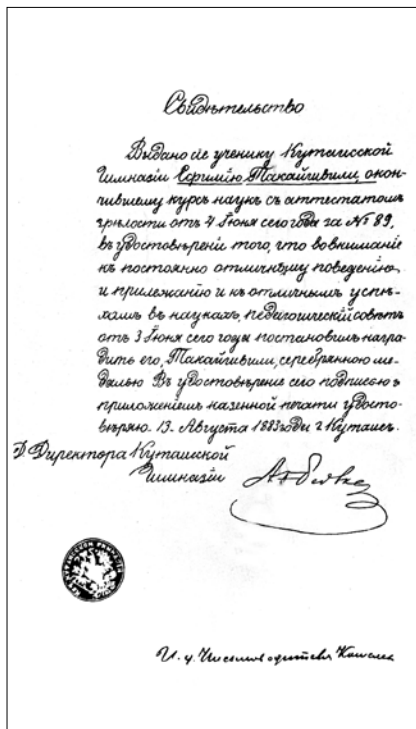 Свидѣтельство
Выдано сіе ученику Кутаисской
Гимназіи Ефимію Такайчивили, окон-
чившему курсъ наукъ съ аттестатомъ
зрѣлости отъ 4 Іюня сего года за № 89,
въ удостовѣреніе того, что во вниманіе
къ постоянно отличному поведенію
и прилежанію и къ отличнымъ успѣ-
хамъ въ наукахъ, педагогическій совѣтъ
отъ 3 Іюня сего года постановилъ награ-
дить его, Такайчивили, серебряною ме-
далью Въ удостовѣреніе сего подписью съ
приложеніемъ казенной печати удосто-
вѣряю. 13. Августа 1883 года г. Кутаисъ.
Д. Директора Кутаисской
Гимназіи
И. д. Письмоводителя